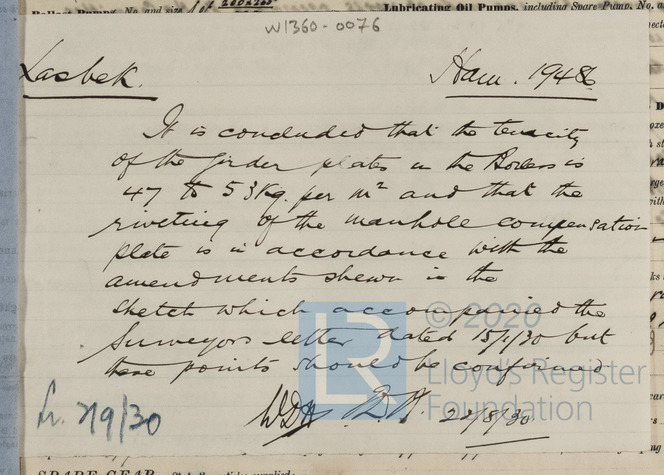 Lubricating Oil Pumps, including Spare Pump, No. a
W1360-0076
Lasbek. Ham. 1948
It is concluded that the tenacity
of the girder plates in the Boilers is
47 to 53 Kg. per m² and that the
riveting of the manhole compensation
plate is in accordance with the
amendments shewn in the
sketch which accompanied the
Surveyors letter dated 15/1/30 but
these points should be confirmed
© 2020
LR
Lloyd's Register
Foundation
22/8/30
Lr. 2/9/30
SPARE GEAR.